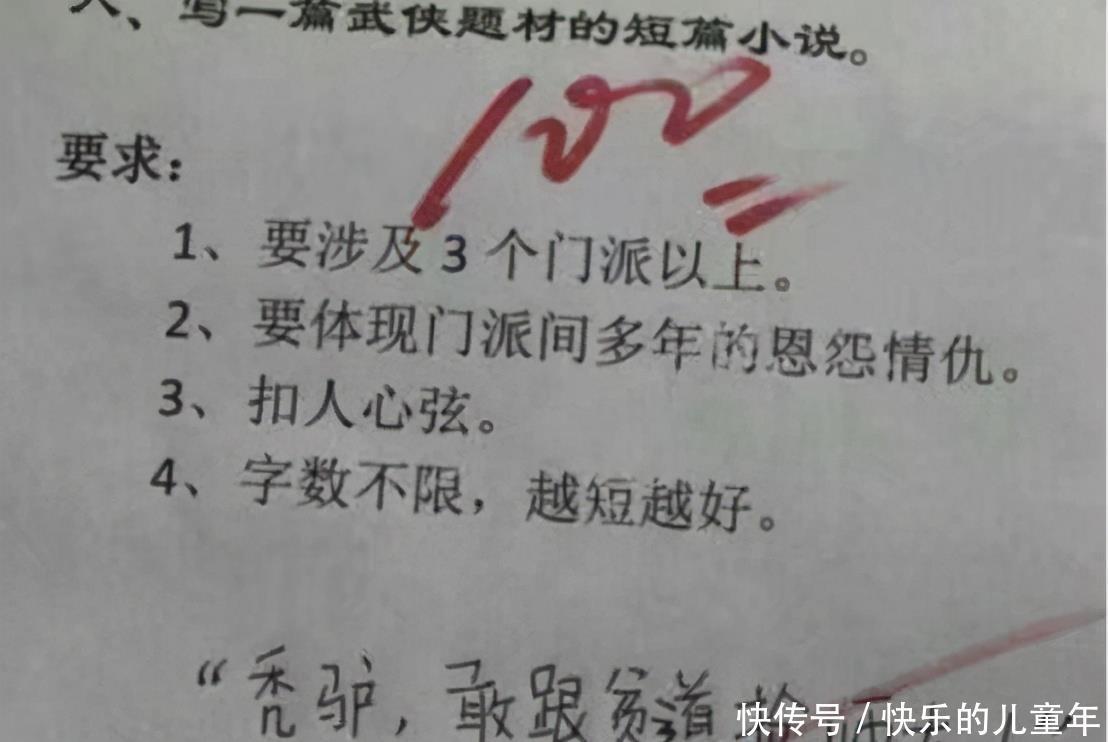 八、写一篇武侠题材的短篇小说。
100
要求：
1、要涉及 3 个门派以上。
2、要体现门派间多年的恩怨情仇。
3、扣人心弦。
4、字数不限，越短越好。
“秃驴，敢跟贫道抢师太
快传号 / 快乐的儿童年